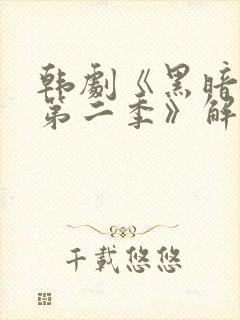 韩劇《黑暗
第二季》解
千載悠悠